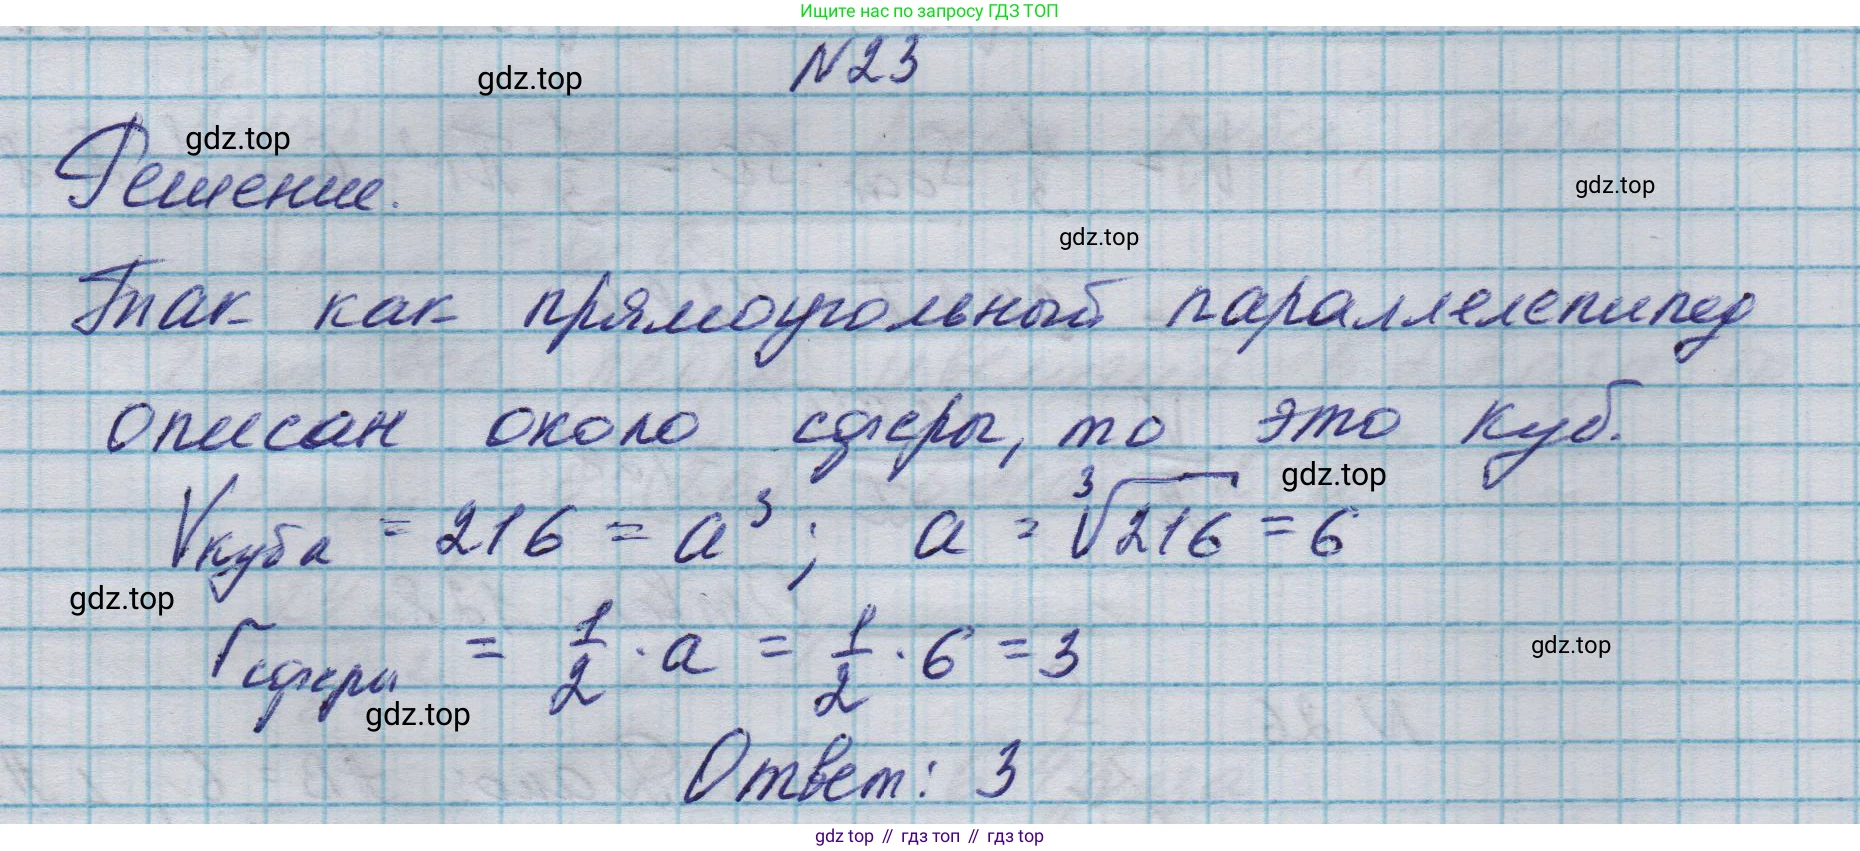 Ищите нас по запросу ГДЗ ТОП
N23
gdz.top
gdz.top
Решение.
gdz.top
gdz.top
Так как прямоугольный параллелепипед
описан около сферы, то это куб.
gdz.top
Vкуба = 216 = a³; a = ∛216 = 6
gdz.top
rсферы = 1/2 · a = 1/2 · 6 = 3
gdz.top
gdz.top
Ответ: 3
gdz top // гдз топ // гдз top